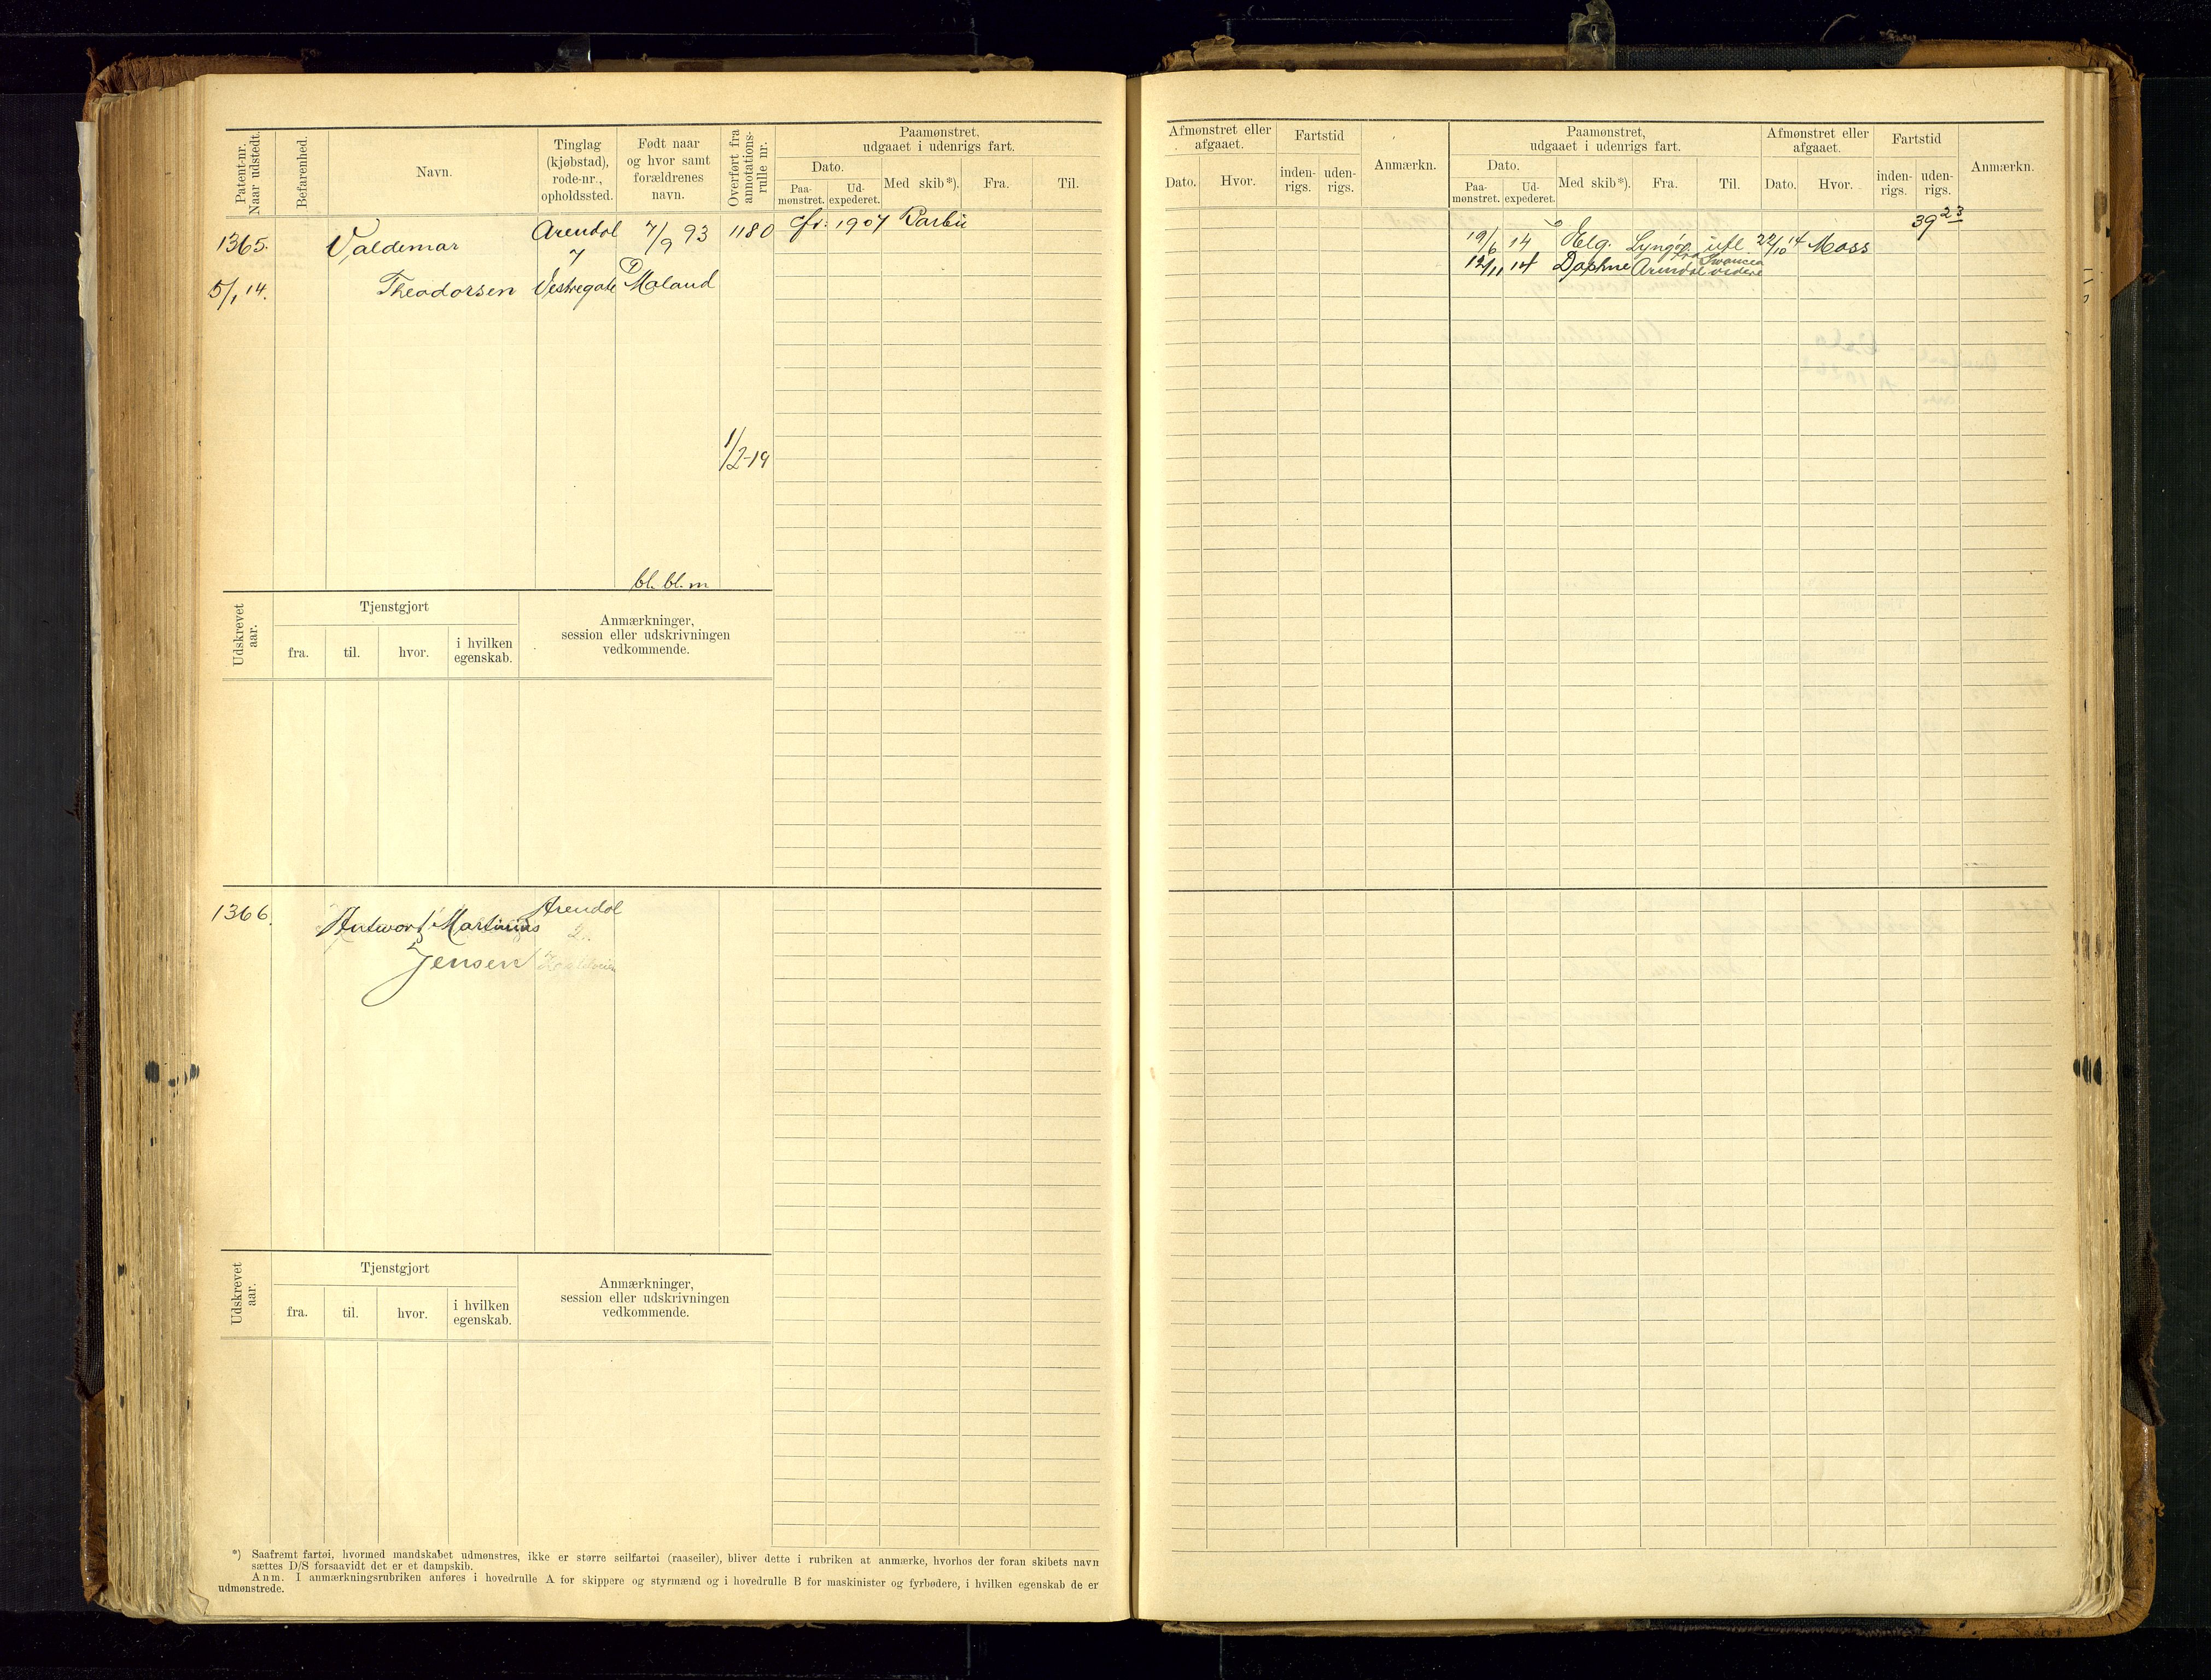 Patent-nr. Naar udstedt.
Befarenhed.
Navn.
Tinglag (kjøbstad), rode-nr., opholdssted.
Født naar og hvor samt forældrenes navn.
Overført fra annotations-rulle nr.
Paamønstret, udgaaet i udenrigs fart.
Dato.
Paa-mønstret.
Ud-expederet.
Med skib*).
Fra.
Til.
1365.
Valdemar
Arendal
7/9 93
1180
cfr: 1907 Barbu
7
5/1 14.
Theodorsen
Vestregate
Moland
1/2-19
bl. bl. m
Udskrevet aar.
Tjenstgjort
fra.
til.
hvor.
i hvilken egenskab.
Anmærkninger, session eller udskrivningen vedkommende.
1366.
Martinius
Arendal
Jensen
Udskrevet aar.
Tjenstgjort
fra.
til.
hvor.
i hvilken egenskab.
Anmærkninger, session eller udskrivningen vedkommende.
*) Saafremt fartøi, hvormed mandskabet udmønstres, ikke er større seilfartøi (raaseiler), bliver dette i rubriken at anmærke, hvorhos der foran skibets navn
sættes D/S forsaavidt det er et dampskib.
Anm. I anmærkningsrubriken anføres i hovedrulle A for skippere og styrmænd og i hovedrulle B for maskinister og fyrbødere, i hvilken egenskab de er
udmønstrede.
Afmønstret eller afgaaet.
Dato.
Hvor.
Fartstid
inden-rigs.
uden-rigs.
Anmærkn.
Paamønstret, udgaaet i udenrigs fart.
Dato.
Paa-mønstret.
Ud-expederet.
Med skib*).
Fra.
Til.
Afmønstret eller afgaaet.
Dato.
Hvor.
Fartstid
inden-rigs.
uden-rigs.
Anmærkn.
39 23
19/6 14 Elg. Lyngør ufl 22/10 14 Moss
12/11 14 Daphne Arendal Swansea videre